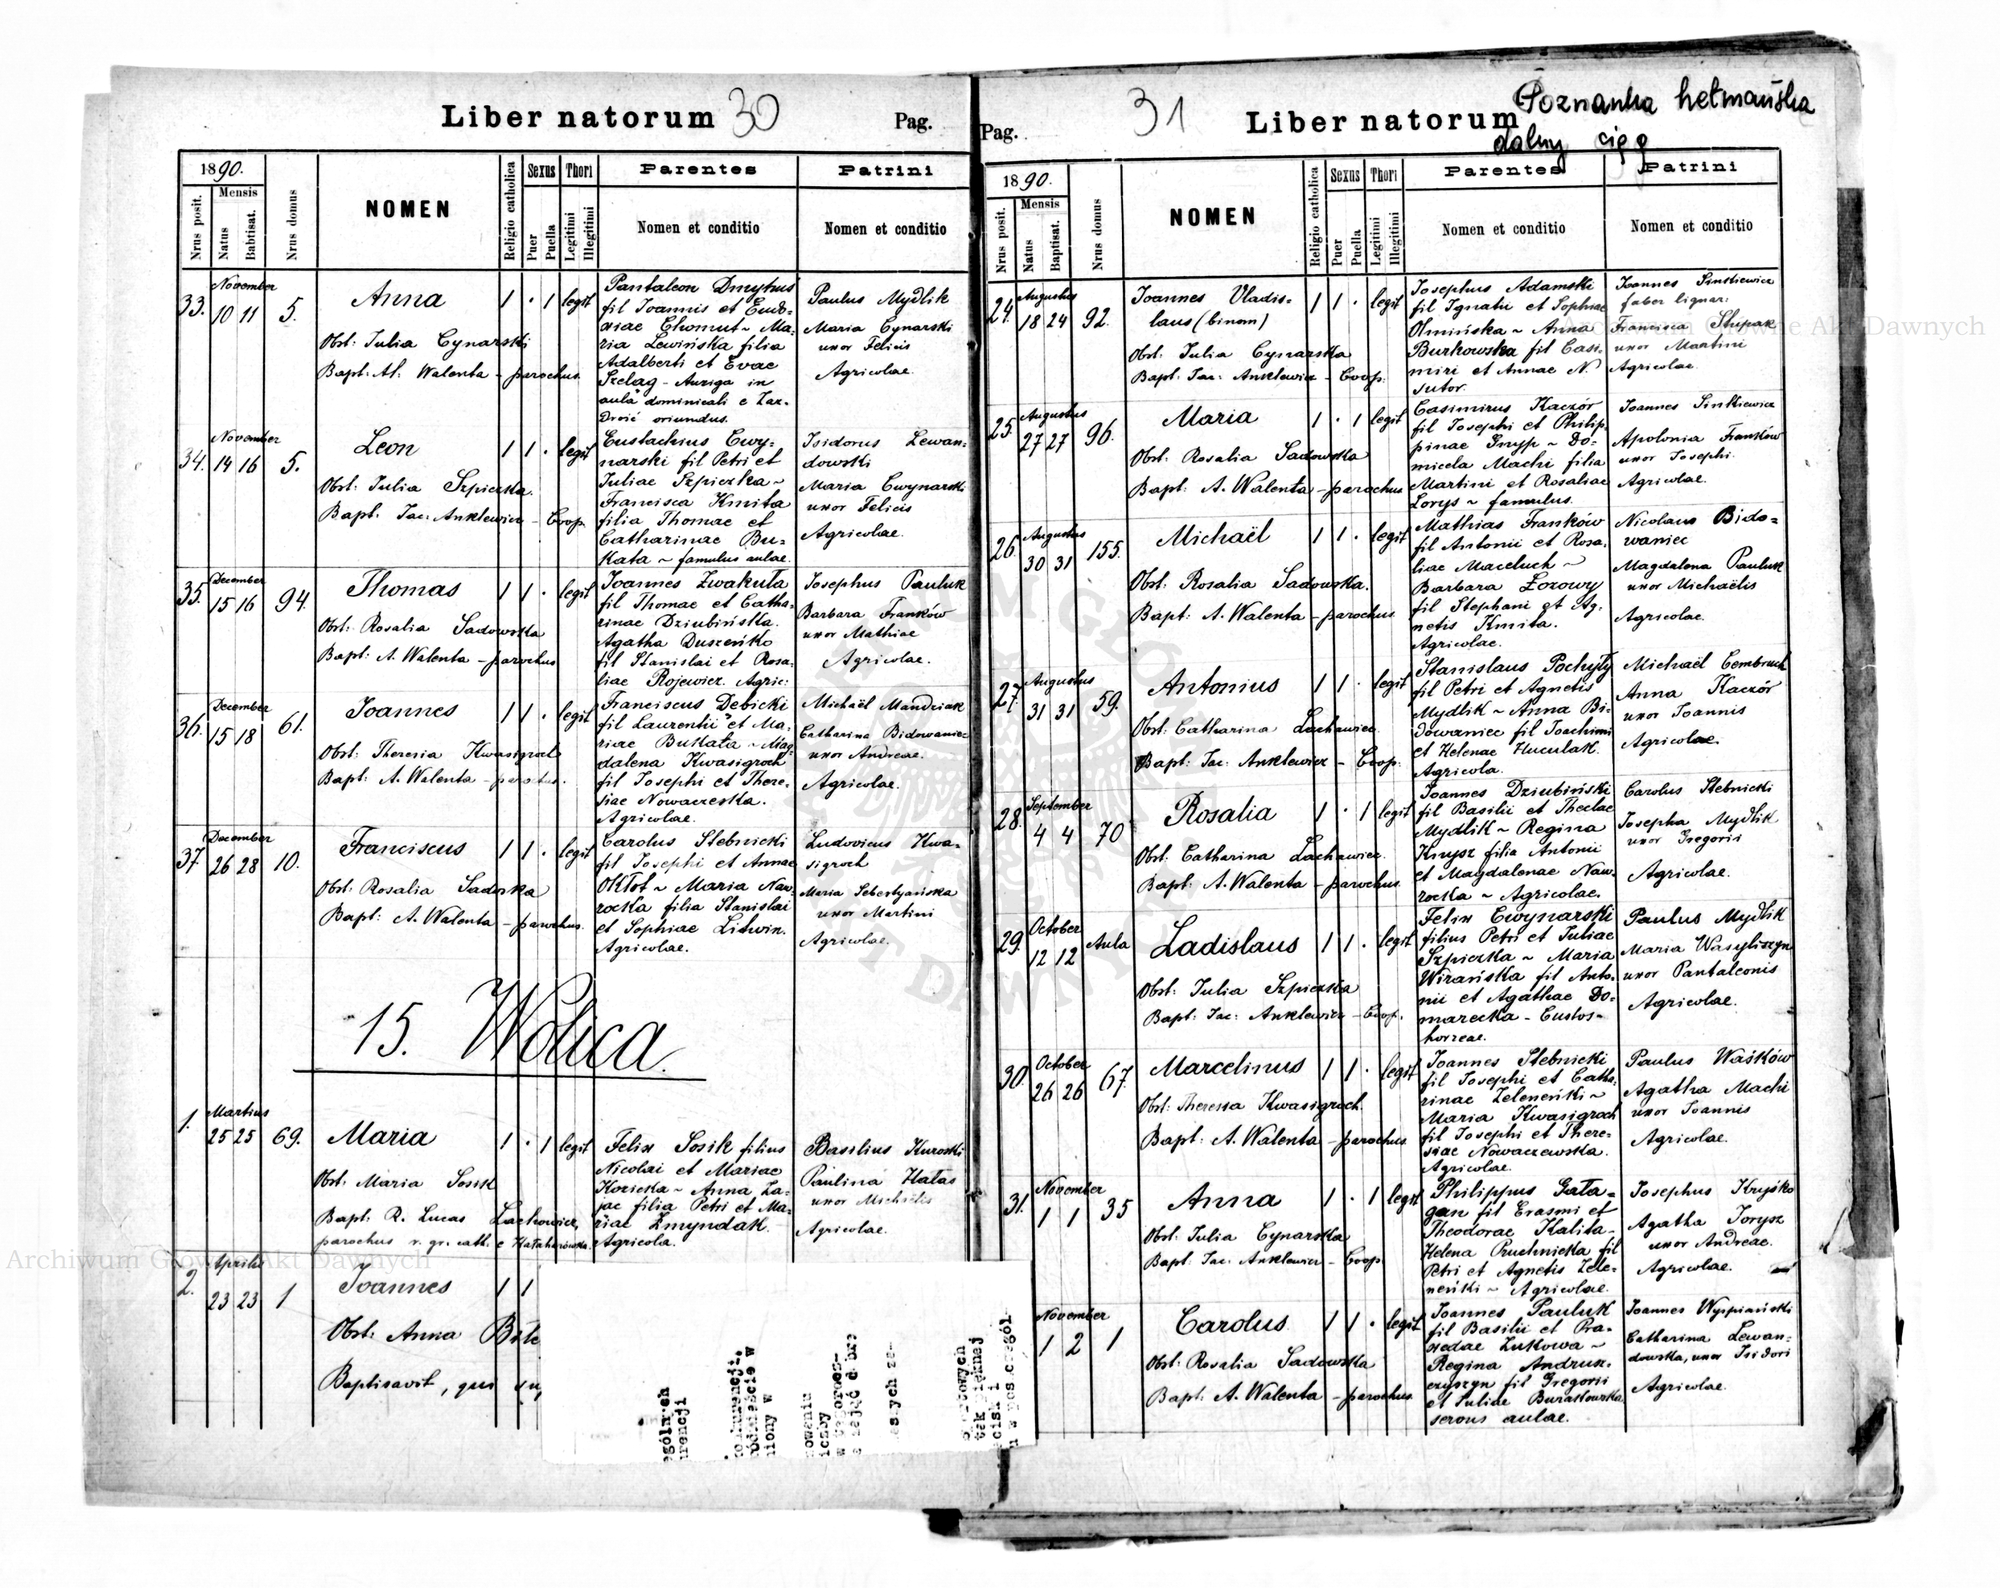 Liber natorum 30
Pag.
1890.
Nrus posit.
Mensis
Natus
Babtisat.
Nrus domus
NOMEN
Religio catholica
Sexus
Puer
Puella
Thori
Legitimi
Illegitimi
Parentes
Nomen et conditio
Patrini
Nomen et conditio
33. November 10 11 5. Anna 1 . 1 legit
Obst: Julia Cynarski
Bapt: At. Walenta - parochus.
Pantaleon Dmytrus
fil Joannis et Eudo-
xiae Chomut ~ Ma-
ria Lewińska filia
Adalberti et Evae
Szelag - Auriga in
aula dominicali e
oriundus.
Paulus Mydlik
Maria Cynarski
uxor Felicis
Agricolae.
34. November 14 16 5. Leon 1 1 . legit
Obst: Julia Szpiczka.
Bapt. Jac: Anklewicz - Coop.
Eustachius Cwy-
narski fil Petri et
Juliae Szpiczka ~
Francisca Kmita
filia Thomae et
Catharinae Bu-
kata ~ famulus aulae.
Isidorus Lewan-
dowski
Maria Cwynarski
uxor Felicis
Agricolae.
35. December 15 16 94. Thomas 1 1 . legit
Obst: Rosalia Sadowska
Bapt: A. Walenta - parochus
Joannes Zwakuła
fil Thomae et Catha-
rinae Dziubińska.
Agatha Duszeńko
fil Stanislai et Rosa-
liae Rojewicz. Agric:
Josephus Pauluk
Barbara Franków
uxor Mathiae
Agricolae.
36. December 15 18 61. Joannes 1 1 . legit
Obst: Theresia Kwasigroch
Bapt: A. Walenta - parochus.
Franciscus Debicki
fil Laurentii et Ma-
riae Bukata ~ Mag-
dalena Kwasigroch
fil Josephi et There-
siae Nowaczeska.
Agricolae.
Michaël Mandziak
Catharina Bidowaniec
uxor Andreae.
Agricolae.
37. December 26 28 10. Franciscus 1 1 . legit
Obst: Rosalia Sadoska
Bapt: A. Walenta - parochus.
Carolus Stebnicki
fil Josephi et Annae
Okłot ~ Maria Naw-
rocka filia Stanislai
et Sophiae Litwin.
Agricolae.
Ludovicus Kwa-
sigroch
Maria Sebestyańska
uxor Martini
Agricolae.
15. Wolica.
1. Martius 25 25 69. Maria 1 . 1 legit
Obst: Maria Sosik
Bapt: R. Lucas Lachowicz,
parochus r. gr. cath. e
Felix Sosik filius
Nicolai et Mariae
Kozicka ~ Anna Za-
jac filia Petri et Ma-
riae Zmyndak.
Agricola.
Basilius Kuroski
Paulina Hałas
uxor Michaelis
Agricolae.
2. Aprilis 23 23 1 Joannes 1 1
Obst: Anna
Baptisavit, qui
Pag.
31
Liber natorum
Poznanka hetmańska
dalszy ciąg
1890.
Nrus posit.
Mensis
Natus
Baptisat.
Nrus domus
NOMEN
Religio catholica
Sexus
Puer
Puella
Thori
Legitimi
Illegitimi
Parentes
Nomen et conditio
Patrini
Nomen et conditio
24. Augustus 18 24 92. Joannes Vladis-
laus (binom) 1 1 . legit
Obst: Julia Cynarska
Bapt: Jac: Anklewicz - Coop:
Josephus Adamski
fil Ignatii et Sophiae
Olmińska ~ Anna
Burkowska fil Casi-
miri et Annae N.
sutor.
Joannes Sinkiewicz
faber lignar:
Francisca Slupak
uxor Martini
Agricolae.
25. Augustus 27 27 96. Maria 1 . 1 legit
Obst: Rosalia Sadowska
Bapt: A. Walenta - parochus
Casimirus Kaczór
fil Josephi et Philip-
pinae Gnyp ~ Do-
micela Machi filia
Martini et Rosaliae
Lorys ~ famulus.
Joannes Sinkiewicz
Apolonia Franków
uxor Josephi.
Agricolae.
26. Augustus 30 31 155. Michaël 1 1 . legit
Obst: Rosalia Sadowska.
Bapt: A. Walenta - parochus
Mathias Franków
fil Antonii et Rosa-
liae Maceluch ~
Barbara Łozowy
fil Stephani et Ag-
netis Kmita.
Agricolae.
Nicolaus Bido-
waniec
Magdalena Pauluk
uxor Michaëlis
Agricolae.
27. Augustus 31 31 59. Antonius 1 1 . legit
Obst: Catharina Lachawiec.
Bapt: Jac: Anklewicz - Coop.
Stanislaus Pochyły
fil Petri et Agnetis
Mydlik ~ Anna Bi-
dowaniec fil Joachimi
et Helenae Huculak.
Agricola.
Michaël Cembruch
Anna Kaczór
uxor Joannis
Agricolae.
28. September 4 4 70 Rosalia 1 . 1 legit
Obst: Catharina Lachawiec.
Bapt: A. Walenta - parochus
Joannes Dziubiński
fil Basilii et Theclae
Mydlik ~ Regina
Knysz filia Antonii
et Magdalenae Naw-
rocka ~ Agricolae.
Carolus Stebnicki
Josepha Mydlik
uxor Gregorii
Agricolae.
29. October 12 12 Aula Ladislaus 1 1 . legit
Obst: Julia Szpiczka
Bapt: Jac: Anklewicz - Coop.
Felix Cwynarski
filius Petri et Juliae
Szpiczka ~ Maria
Wirańska fil Anto-
nii et Agathae Do-
marecka - Custos-
horreae.
Paulus Mydlik
Maria Wasyliszyn
uxor Pantaleonis
Agricolae.
30. October 26 26 67. Marcelinus 1 1 . legit
Obst: Theresia Kwasigroch.
Bapt: A. Walenta - parochus
Joannes Stebnicki
fil Josephi et Catha-
rinae Zeleneńki ~
Maria Kwasigroch
fil Josephi et There-
siae Nowaczewska.
Agricolae.
Paulus Waśków
Agatha Machi
uxor Joannis
Agricolae.
31. November 1 1 35 Anna 1 . 1 legit
Obst: Julia Cynarska
Bapt: Jac: Anklewicz - Coop
Philippus Gała-
gan fil Erasmi et
Theodorae Kalita -
Helena Pruchnicka fil
Petri et Agnetis Zele-
neńki ~ Agricolae.
Josephus Kryśko
Agatha Jorysz
uxor Andreae.
Agricolae.
November 1 2 1 Carolus 1 1 . legit
Obst: Rosalia Sadowska
Bapt: A. Walenta - parochus.
Joannes Pauluk
fil Basilii et Pra-
xedae Żukowa ~
Regina Andrux-
czyszyn fil Gregorii
et Juliae Burakowska
servus aulae.
Joannes Wyspiański
Catharina Lewan-
dowska, uxor Isidori
Agricolae.
Archiwum Główne Akt Dawnych
Archiwum Główne Akt Dawnych